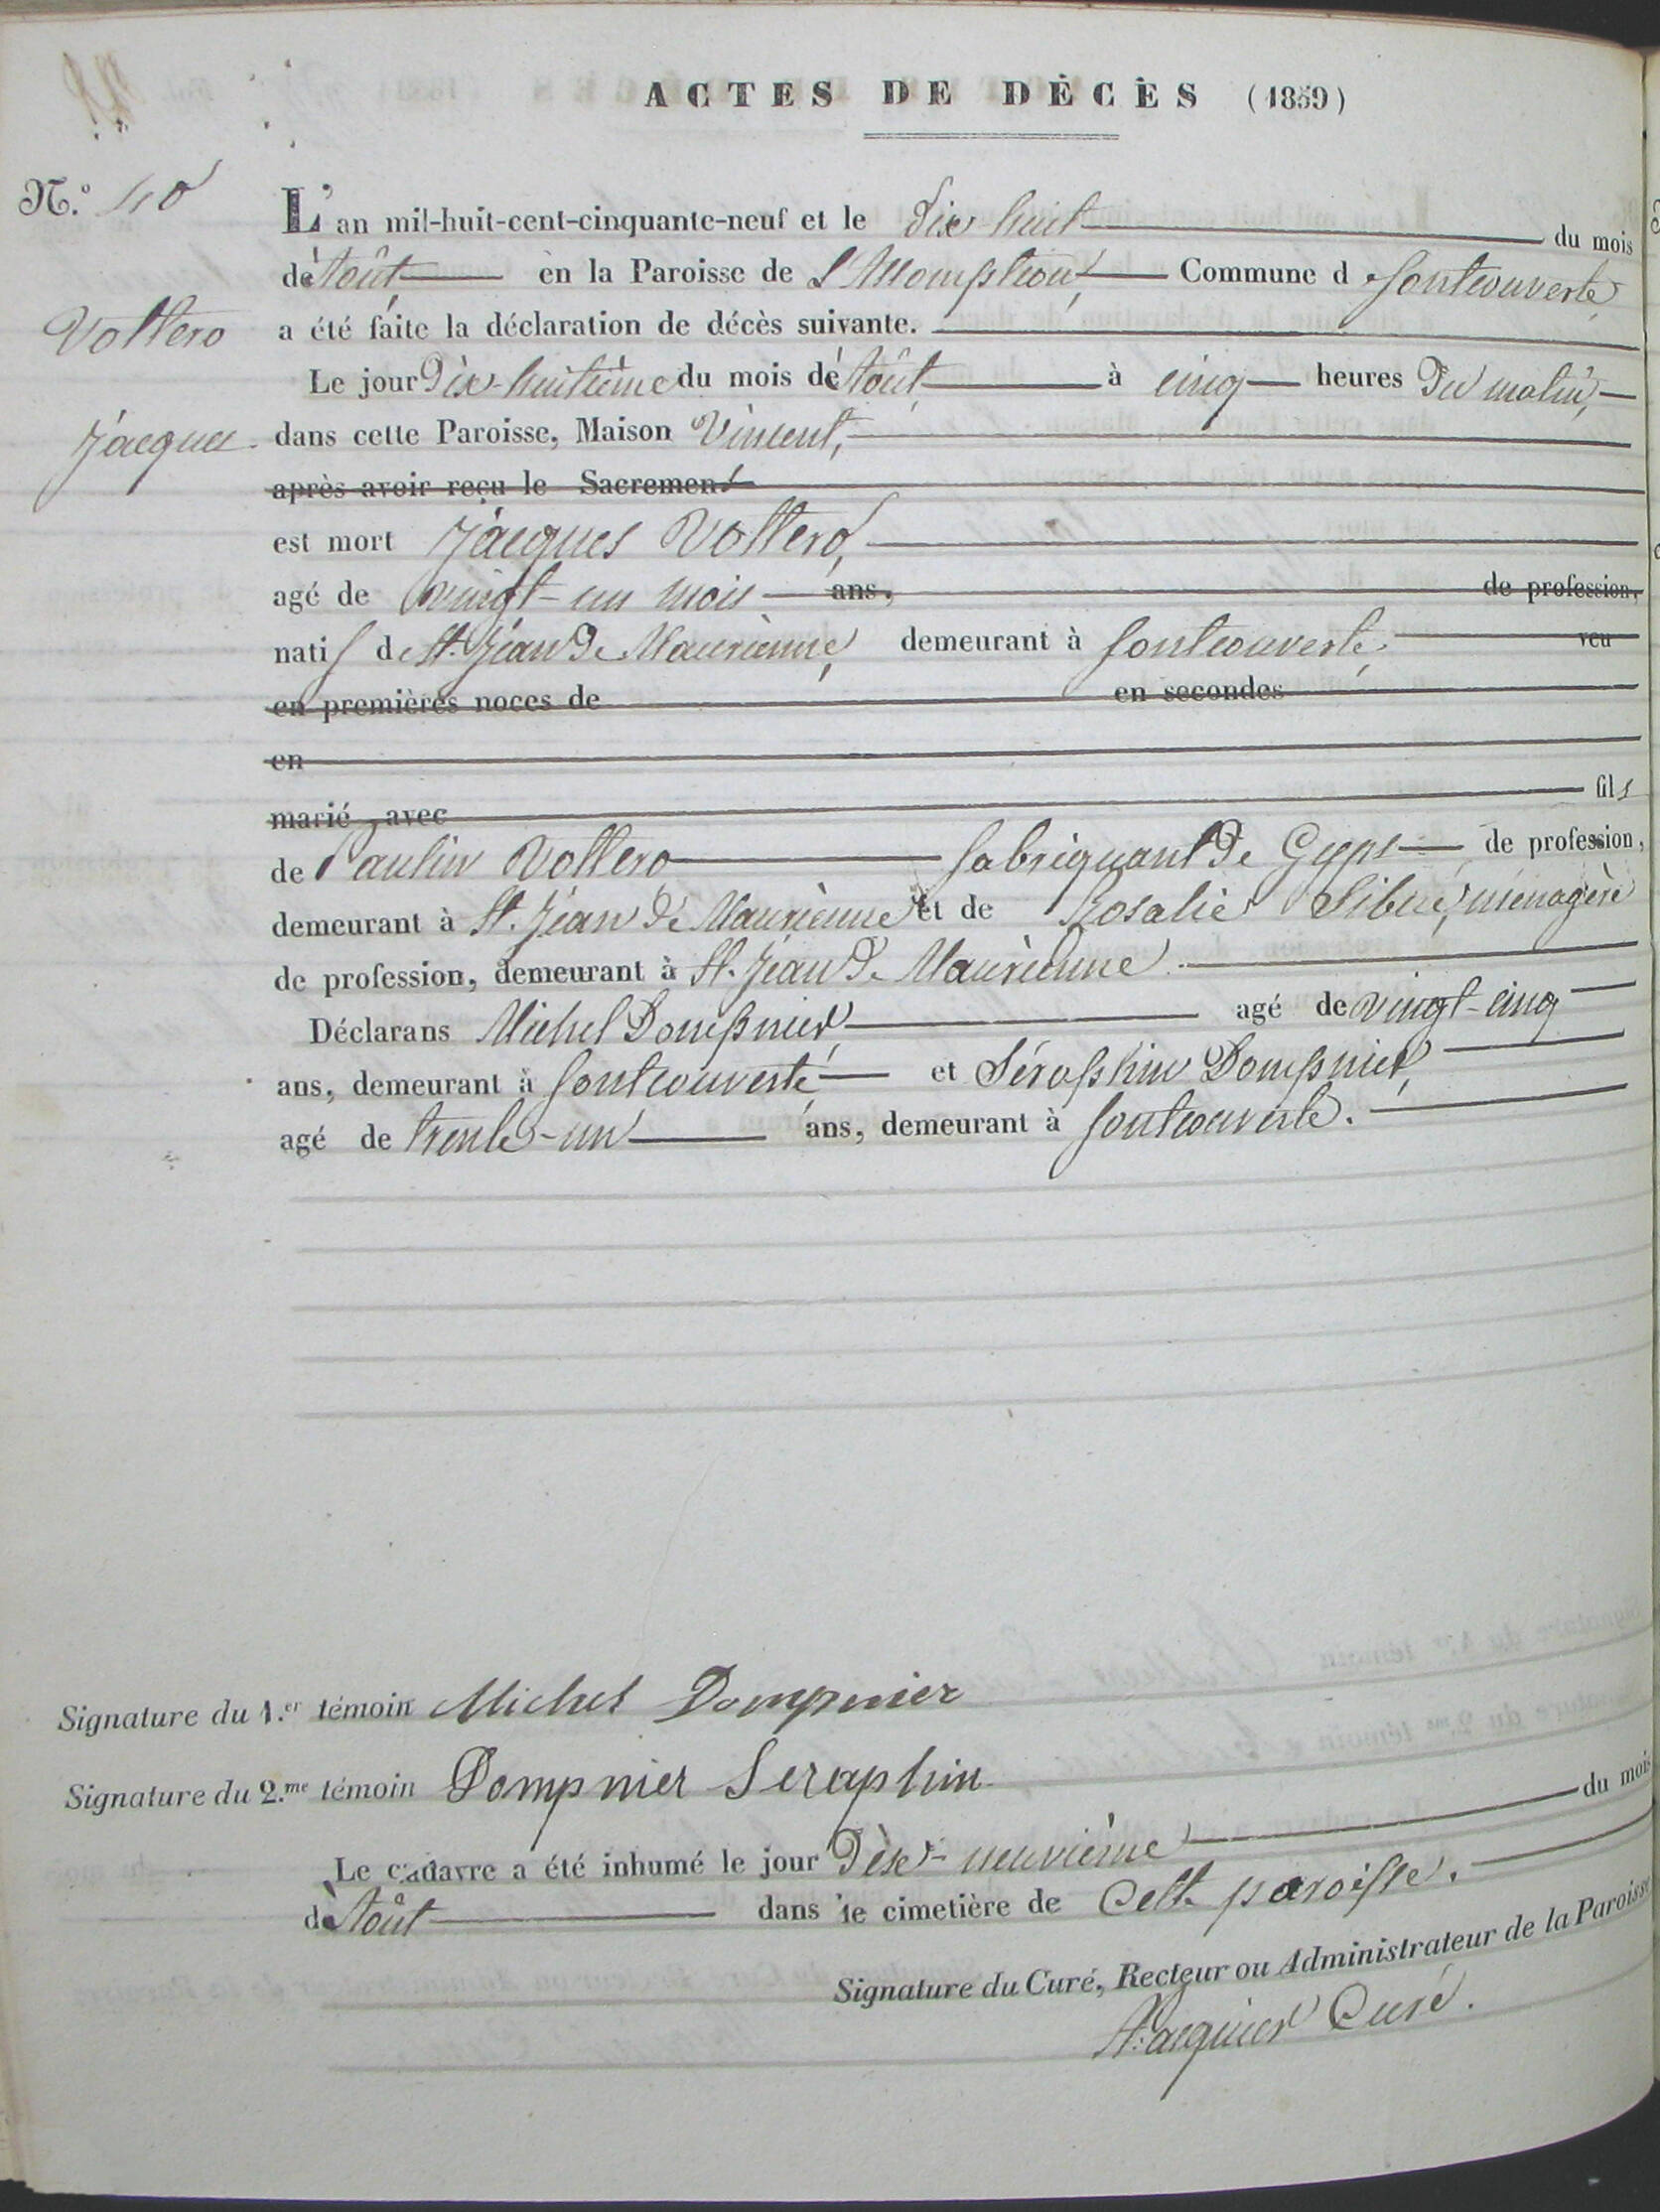 ACTES DE DÉCÈS (1859)
N.º 40
L'an mil-huit-cent-cinquante-neuf et le dix huit du mois
d'Août en la Paroisse de L'Assomption, Commune d fontcouverte,
Vottero a été faite la déclaration de décès suivante.
Le jour Dix-huitième du mois d'Août à cinq heures Du matin,
Jacques dans cette Paroisse, Maison Vincent,
après avoir reçu le Sacrement
est mort Jacques Vottero,
agé de vingt-un mois ans, de profession,
natif de St. Jean De Maurienne, demeurant à fontcouverte, veu
en premières noces de en secondes
en
marié avec fils
de Paulin Vottero fabriquant De Gyps de profession,
demeurant à St. Jean De Maurienne et de Rosalie ménagère
de profession, demeurant à St. Jean De Maurienne.
Déclarans Michel Dompnier, agé de vingt-cinq
ans, demeurant à fontcouverte, et Séraphin Dompnier,
agé de trente-un ans, demeurant à fontcouverte.
Signature du 1.er témoin Michel Dompnier
Signature du 2.me témoin Dompnier Seraphin
Le cadavre a été inhumé le jour Dix-neuvième du mois
d'Août dans le cimetière de Cette paroisse.
Signature du Curé, Recteur ou Administrateur de la Paroisse
Curé.